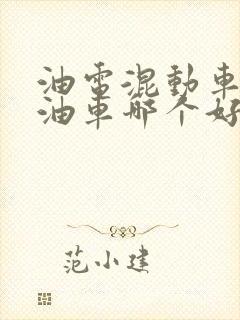 油電混動車
油車哪个好
范小建